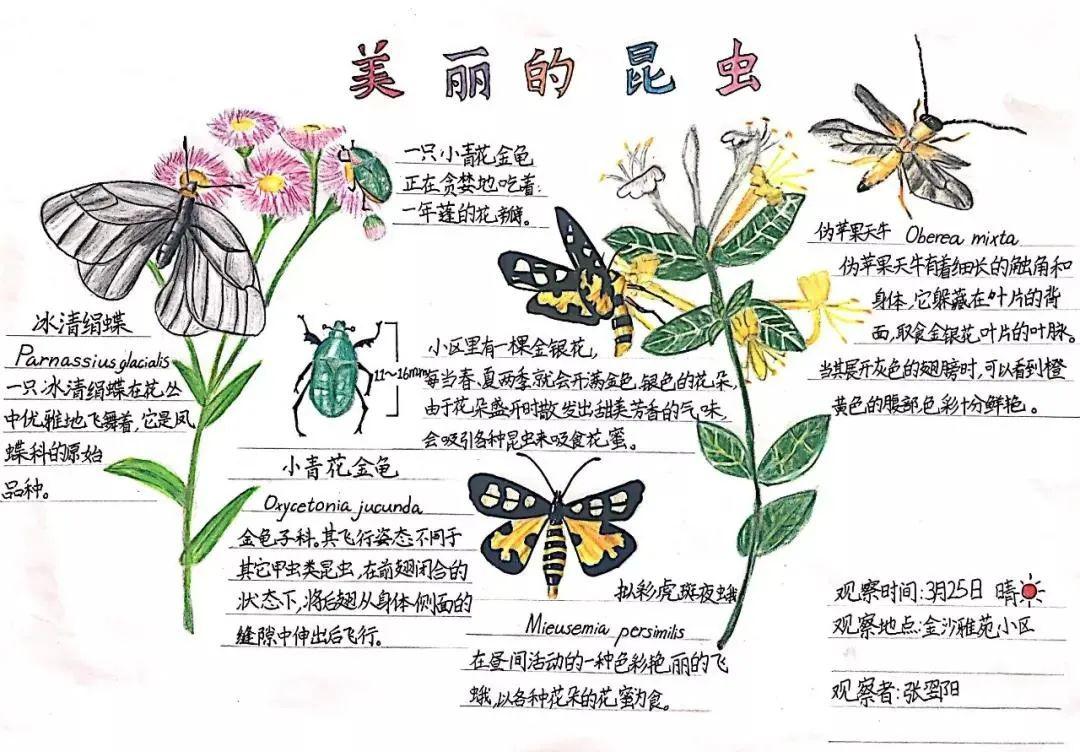 美丽的昆虫
一只小青花金龟
正在贪婪地吃着
一年蓬的花瓣。
冰清绢蝶
Parnassius glacialis
一只冰清绢蝶在花丛
中优雅地飞舞着,它是凤
蝶科的原始
品种。
11~16mm
小青花金龟
Oxycetonia jucunda
金龟子科。其飞行姿态不同于
其它甲虫类昆虫,在前翅闭合的
状态下,将后翅从身体侧面的
缝隙中伸出后飞行。
小区里有一棵金银花,
每当春、夏两季就会开满金色、银色的花朵,
由于花朵盛开时散发出甜美芳香的气味,
会吸引各种昆虫来吸食花蜜。
拟彩虎斑夜蛾
Mieusemia persimilis
在昼间活动的一种色彩艳丽的飞
蛾,以各种花朵的花蜜为食。
伪苹果天牛 Oberea mixta
伪苹果天牛有着细长的触角和
身体,它躲藏在叶片的背
面,取食金银花叶片的叶脉。
当其展开灰色的翅膀时,可以看到橙
黄色的腹部,色彩十分鲜艳。
观察时间:3月25日 晴
观察地点:金沙雅苑小区
观察者:张翌阳